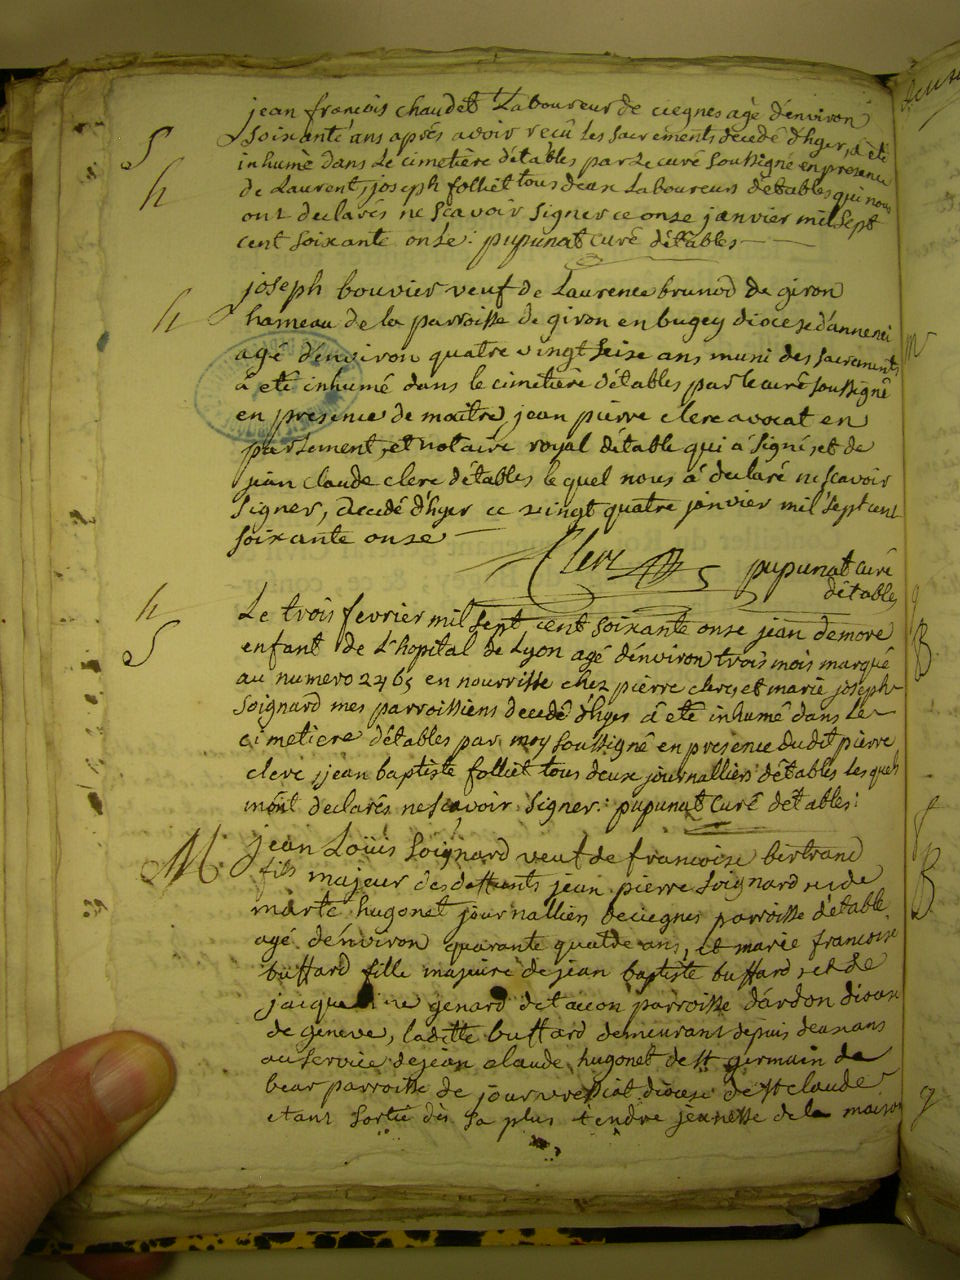 jean francois chaudet Laboureur de ciegnes agé d'environ
S soixante ans aprés avoir reçu les sacrements decedé d'hyer, a été
inhumé dans Le cimetiére d'étables par Le curé soussigné en presence
h de Laurent, joseph folliet tous deux Laboureurs d'étables qui nous
ont declarés ne scavoir signer ce onze janvier mil sept
cent soixante onze: pupunat curé d'étables
joseph bouvier veuf de Laurence brunod de giron
h hameau de la parroisse de giron en bugey diocese d'anneci
agé d'environ quatre vingt seise ans muni des sacrements
a eté inhumé dans le cimetiére d'étables par le curé soussigné
en presence de maitre, jean pierre clerc avocat en
parlement, et notaire royal d'étable qui a signé, et de
jean claude clerc d'étables le quel nous á declaré ne scavoir
signer, decedé d'hyer ce vingt quatre janvier mil sept cent
soixante onze
Clerc pupunat curé
d'étables
h Le trois fevrier mil sept cent soixante onze jean demore
S enfant de L'hopital de Lyon agé d'environ trois mois marqué
au numero 2465 en nourrisse chez pierre clerc et marie joseph
Soignard mes parroissiens decedé d'hyer a eté inhumé dans Le
cimetiere d'étables par moy soussigné en presence dudit pierre
clerc, jean baptiste folliet tous deux journalliers d'étables les quels
m'ont declarés ne scavoir signer: pupunat Curé d'étables:
M jean Loüis Soignard veuf de francoise bertrand
fils majeur des deffunts jean pierre Soignard, et de
marte hugonet journallier de ciegnes parroisse d'étable
agé d'environ quarante quatre ans, et marie francoise
buffard fille majeure de jean baptiste buffard, et de
jacque genard de tacon parroisse d'ardon diocese
de geneve, laditte buffard demeurant depuis deux ans
au service de jean claude hugonet de st germain de
bear parroisse de diocese de st claude
etant sortie dès sa plus tendre jeunesse de la maison